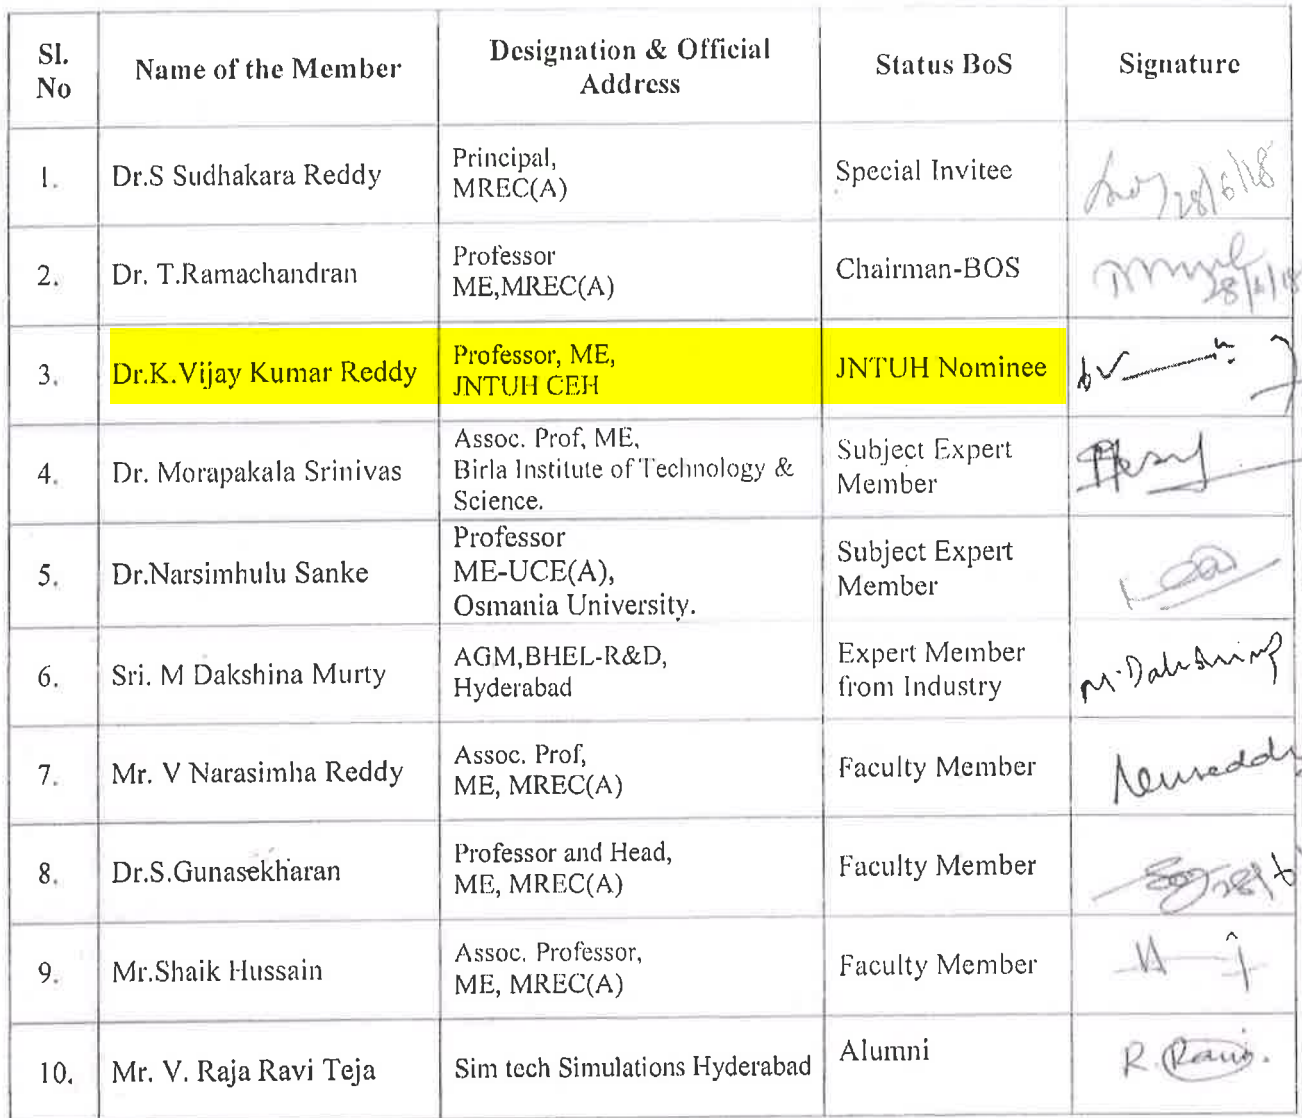 Sl. No
Name of the Member
Designation & Official Address
Status BoS
Signature
1.
Dr.S Sudhakara Reddy
Principal,
MREC(A)
Special Invitee
28/6/18
2.
Dr. T.Ramachandran
Professor
ME,MREC(A)
Chairman-BOS
28/6/18
3.
Dr.K.Vijay Kumar Reddy
Professor, ME,
JNTUH CEH
JNTUH Nominee
4.
Dr. Morapakala Srinivas
Assoc. Prof, ME,
Birla Institute of Technology &
Science.
Subject Expert
Member
5.
Dr.Narsimhulu Sanke
Professor
ME-UCE(A),
Osmania University.
Subject Expert
Member
6.
Sri. M Dakshina Murty
AGM,BHEL-R&D,
Hyderabad
Expert Member
from Industry
7.
Mr. V Narasimha Reddy
Assoc. Prof,
ME, MREC(A)
Faculty Member
8.
Dr.S.Gunasekharan
Professor and Head,
ME, MREC(A)
Faculty Member
28/6
9.
Mr.Shaik Hussain
Assoc. Professor,
ME, MREC(A)
Faculty Member
10.
Mr. V. Raja Ravi Teja
Sim tech Simulations Hyderabad
Alumni